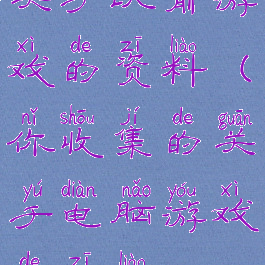 xì de zī liào
戏的资料（
nǐ shōu jí de guān
你收集的关
yú diàn nǎo yóu xì
于电脑游戏
de zī liào